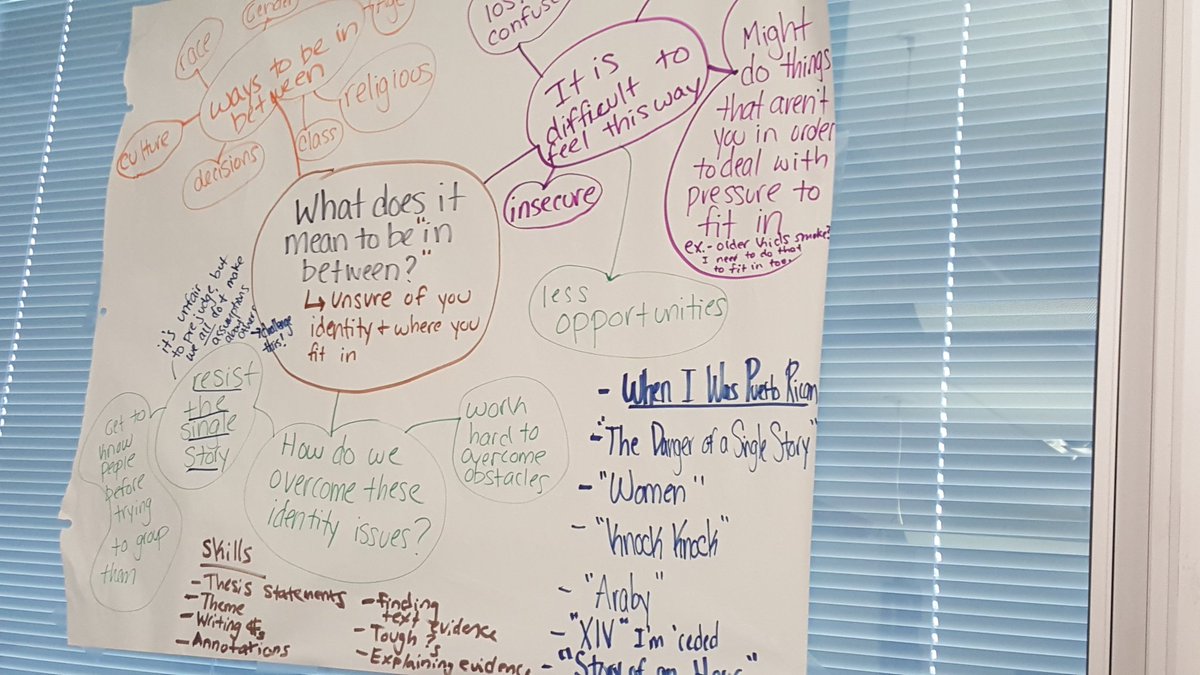 Gender
age
race
ways to be in
between
culture
decisions
class
religious
los
confuse
It is
difficult to
feel this way
insecure
Might
do things
that aren't
you in order
to deal with
pressure to
fit in
ex.- older kids smoke?
I need to do that
to fit in too.
What does it
mean to be "in
between?"
↳ unsure of you
identity + where you
fit in
less
opportunities
it's unfair
to prejudge, but
we all do + make
assumptions
about
others
→ challenge
this!
resist
the
single
story
Get to
know
people
before
trying
to group
them
How do we
overcome these
identity issues?
work
hard to
overcome
obstacles
- When I Was Puerto Rican
- "The Danger of a Single Story"
- "Women"
- "Knock Knock"
- "Araby"
- "XIV" I'm 'ceded
- "Story of an Hour"
Skills
- Thesis statements
- Theme
- Writing ¶s
- Annotations
- finding
text evidence
- Tough ?s
- Explaining evidence